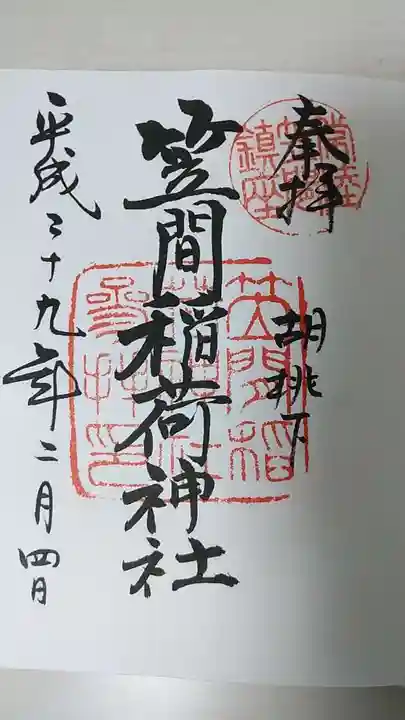 奉拝
胡桃下
笠間稲荷神社
平成二十九年二月四日
常陸笠間鎮座
笠間稲荷神社参拝之印